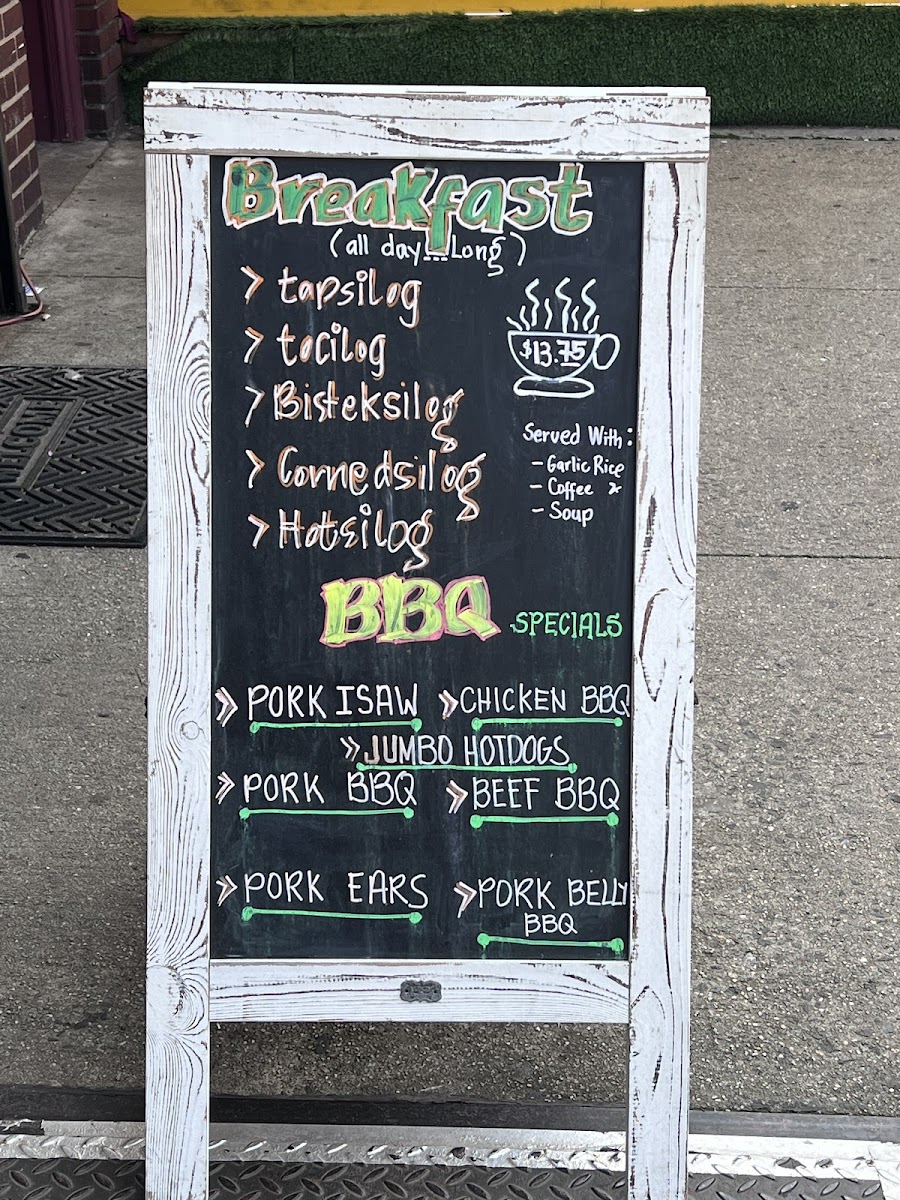 Breakfast
(all day...Long)
> tapsilog
> tocilog
$13.75
> Bisteksilog
Served With:
- Garlic Rice
- Coffee &
- Soup
> Cornedsilog
> Hotsilog
BBQ SPECIALS
» PORK ISAW » CHICKEN BBQ
» JUMBO HOTDOGS
» PORK BBQ » BEEF BBQ
» PORK EARS » PORK BELLY
BBQ